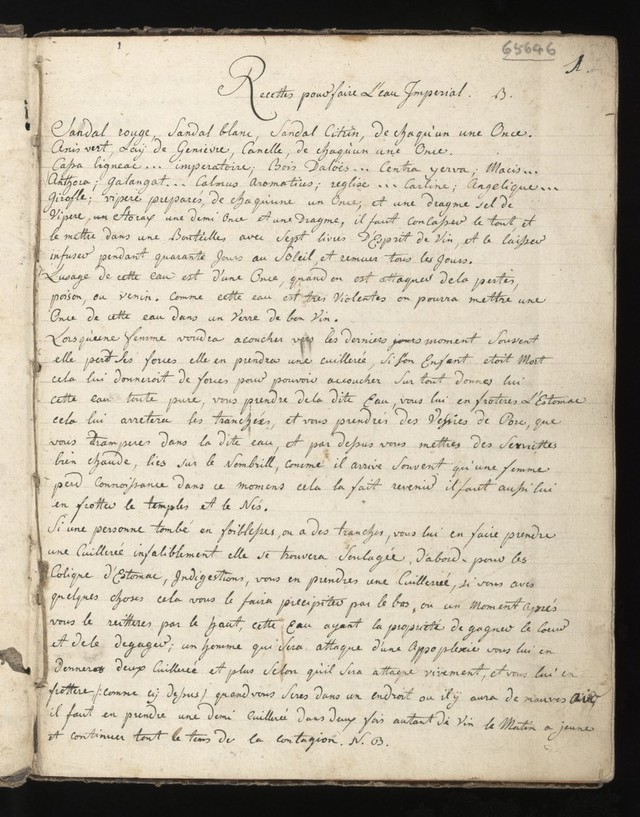 65646
1.
Recettes pour faire L'eau Imperial. B.
Sandal rouge, Sandal blanc, Sandal Citrin, de chaqu'un une Once.
Anis vert, Laij de Genièvre, Canelle, de chaqu'un une Once.
Caßa ligneae... imperatoire; Bois Daloës... Centra yerva; Macis...
Anthora; Galangat... Calmus Aromatices; reglise... Carline; Angelique...
Girofle; vipere preparés, de chaqu'une un Once, et une dragme sel de
Vipere, un Storax une demi Once et une Dragme, il faut conlasser le tout, et
le mettre dans une Bouteilles avec Sept livres D'Esprit de Vin, et le laisser
infuser pendant quarante Jours au Soleil, et remuer tous les Jours.
L'usage de cette eau est d'une Once, quand on est attaquer de la pertes,
poison, ou venin. comme cette eau est très Violentes on pourra mettre une
Once de cette eau dans un Verre de bon Vin.
Lorsqu'eene femme voudra acoucher vers les derniers jours moment Souvent
elle perd Ses forces elle en prendra une cuillereé, Si Son Enfant etoit Mort
cela lui donneroit de forces pour pouvoir accoucher Sur tout donnes lui
cette eau toute pure, vous prendre de la dite Eau, vous lui en frotères L'Estomac
cela lui arretera les tranchées, et vous prendrés des Vessies de Porc, que
vous tramperes dans la dite eau, et par dessus vous mettres des Serviettes
bien chaude, liés Sur le Nombrill, comme il arrive Souvent qu'une femme
perd Connoissance dans ce momens cela la fait revenir il faut aussi lui
en frotter le temples et le Nés.
Si une personne tombé en foiblesses, ou a des tranches, vous lui en faire prendre
une Cuillereé infaliblement elle se trouvera Soulagée, d'abord pour les
Colique d'Estomac, Indigestions, vous en prendres une Cuillerreé, si vous avés
quelques choses cela vous le faira precipiter par le bas, ou un Moment Aprés
vous le rentteres par le haut, cette Eau ayant la proprieté de gagner le Cœur
et de le degager; un homme qui Sera attaque d'une Appoplexie vous lui en
Donneros deux Cuillereé et plus Selon qu'il Sera attaque vivement, et vous lui en
frottere /: comme cij dessus/ quand vous Seres dans un endroit ou il y aura de mauves air
il faut en prendre une demi Cuillereé dans deux fois autant de Vin le Matin a jeune
et continuer tout le tems de la contagion. N. B.